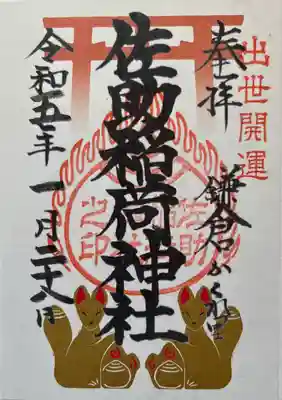 出世開運
奉拝
鎌倉かくれ里
佐助稲荷神社
佐助稲荷
之印
令和五年 一月二十八日